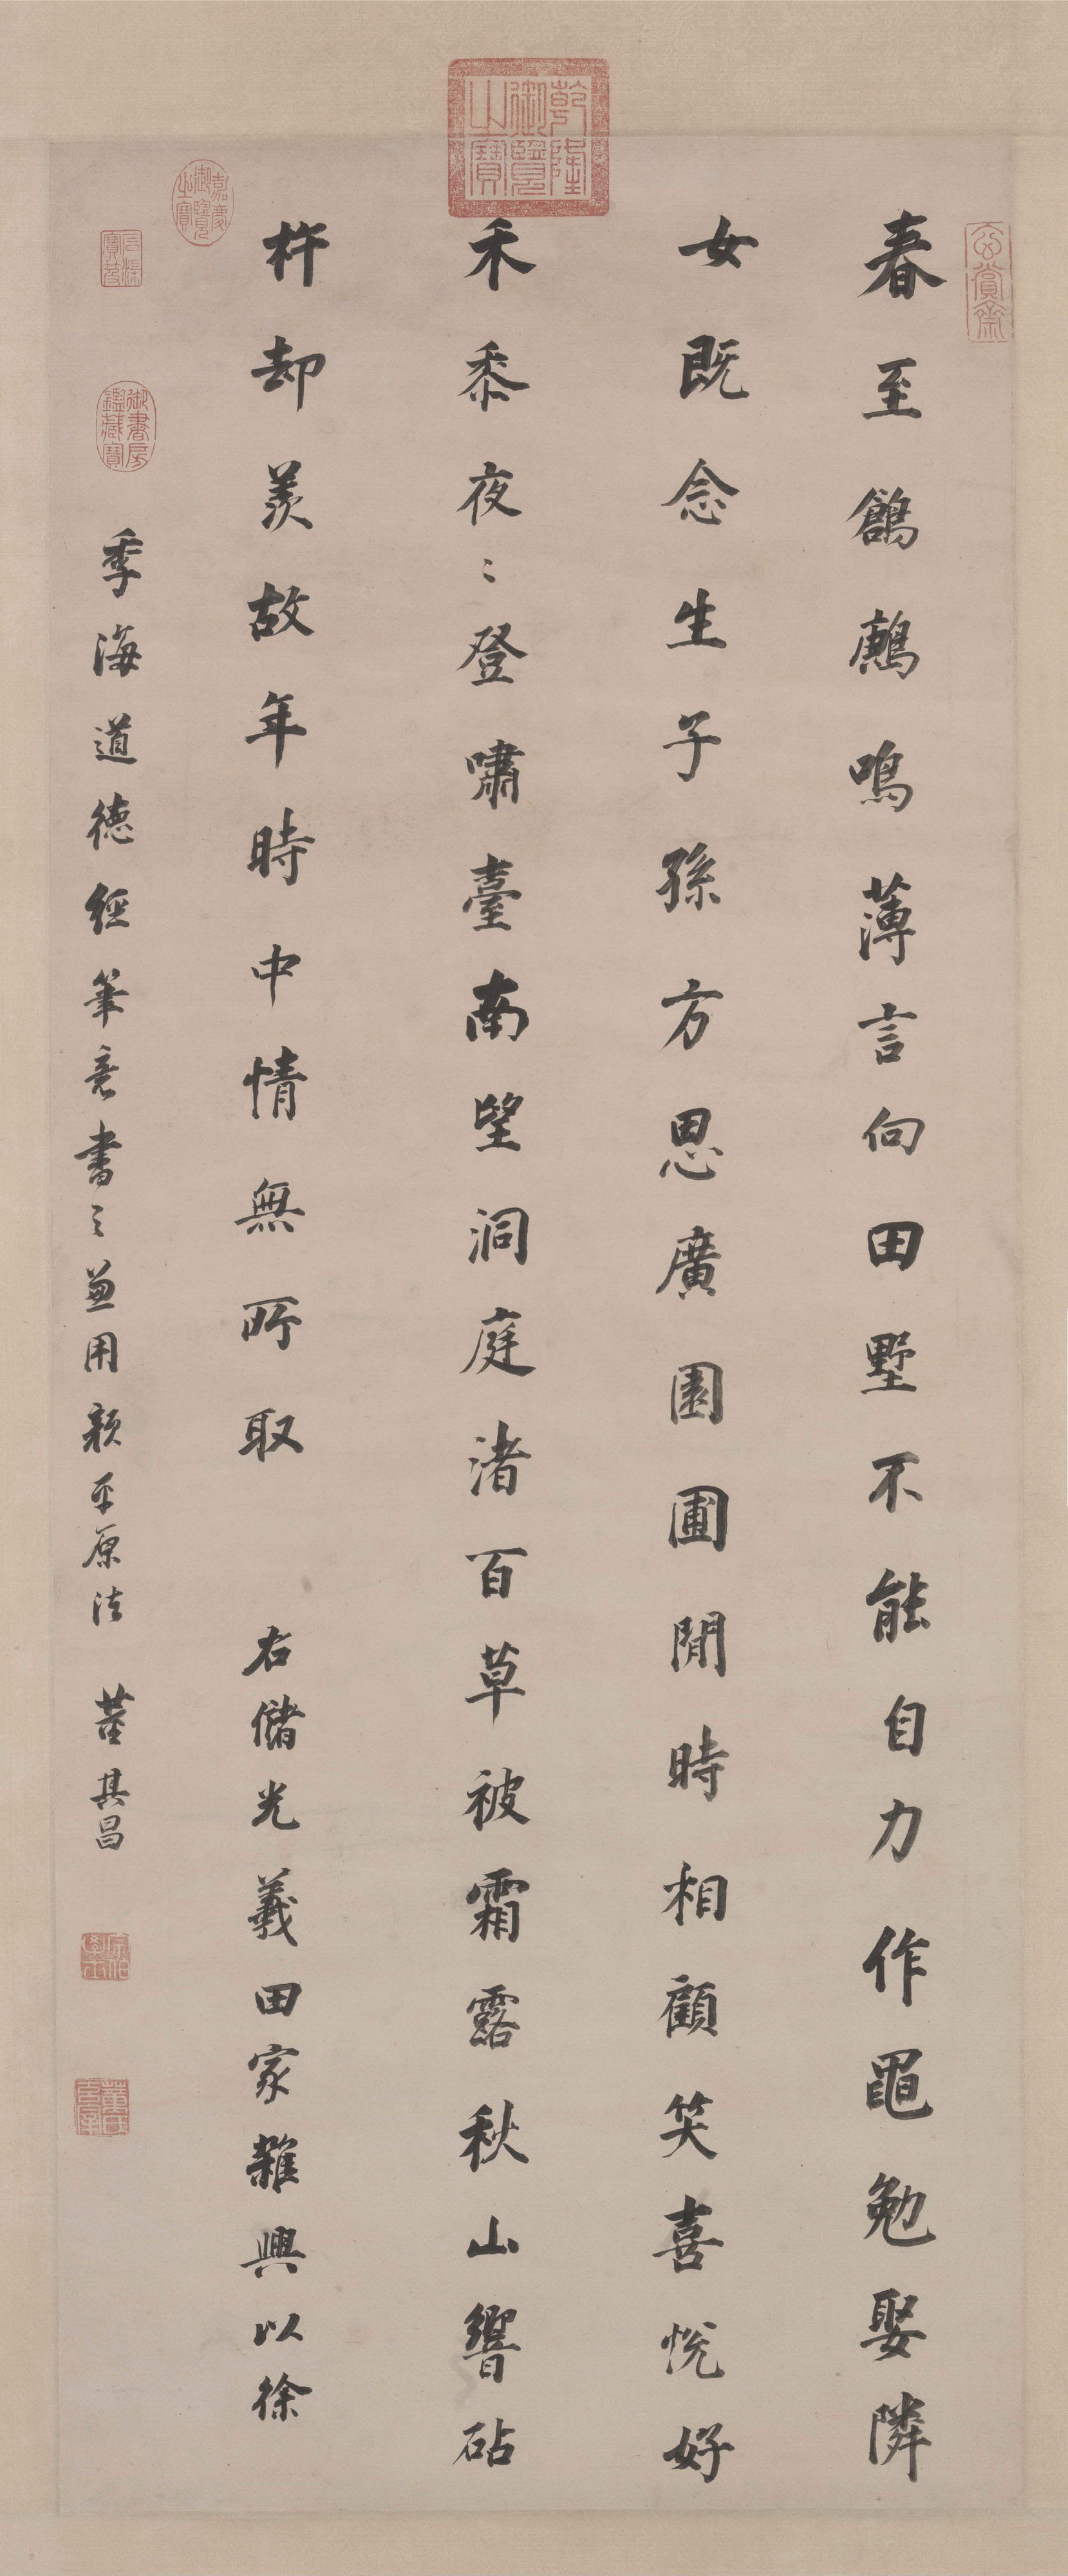 春至鶬鶊鳴薄言向田墅不能自力作黽勉娶隣
女既念生子孫方思廣園圃閒時相顧笑喜悅好
禾黍夜〻登嘯臺南望洞庭渚百草被霜露秋山響砧
杵却羨故年時中情無所取 右儲光羲田家雜興以徐
季海道德經筆意書之兼用顏平原法 董其昌
玄賞齋
乾隆御覽之寶
嘉慶御覽之寶
石渠寶笈
御書房鑑藏寶
宗伯學士
董氏玄宰